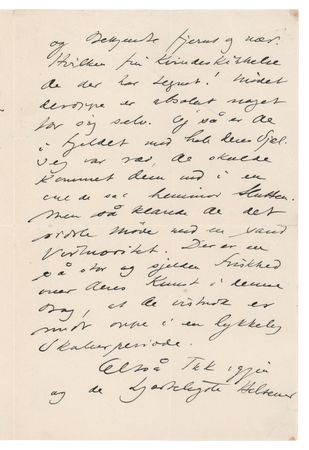 og Bekjendte fjernt og nær.
Hvilken fin Kvindeskikkelse
de der har tegnet! Hodet
deroppe er absolut noget
for sig selv. Og så er de
i fjeldet med hele deres Sjel.
Jeg var ræd, de skulde
kommet dem ud i en
Men så klarede de det
sidste med en sand
Virtuositet. Der er en
så stor og sjelden Friskhed
over deres Kunst i denne
Bog, at de vistnok er
midt oppe i en lykkelig
Skaberperiode.
Altså Tak igjen
og de hjerteligste Hilsener